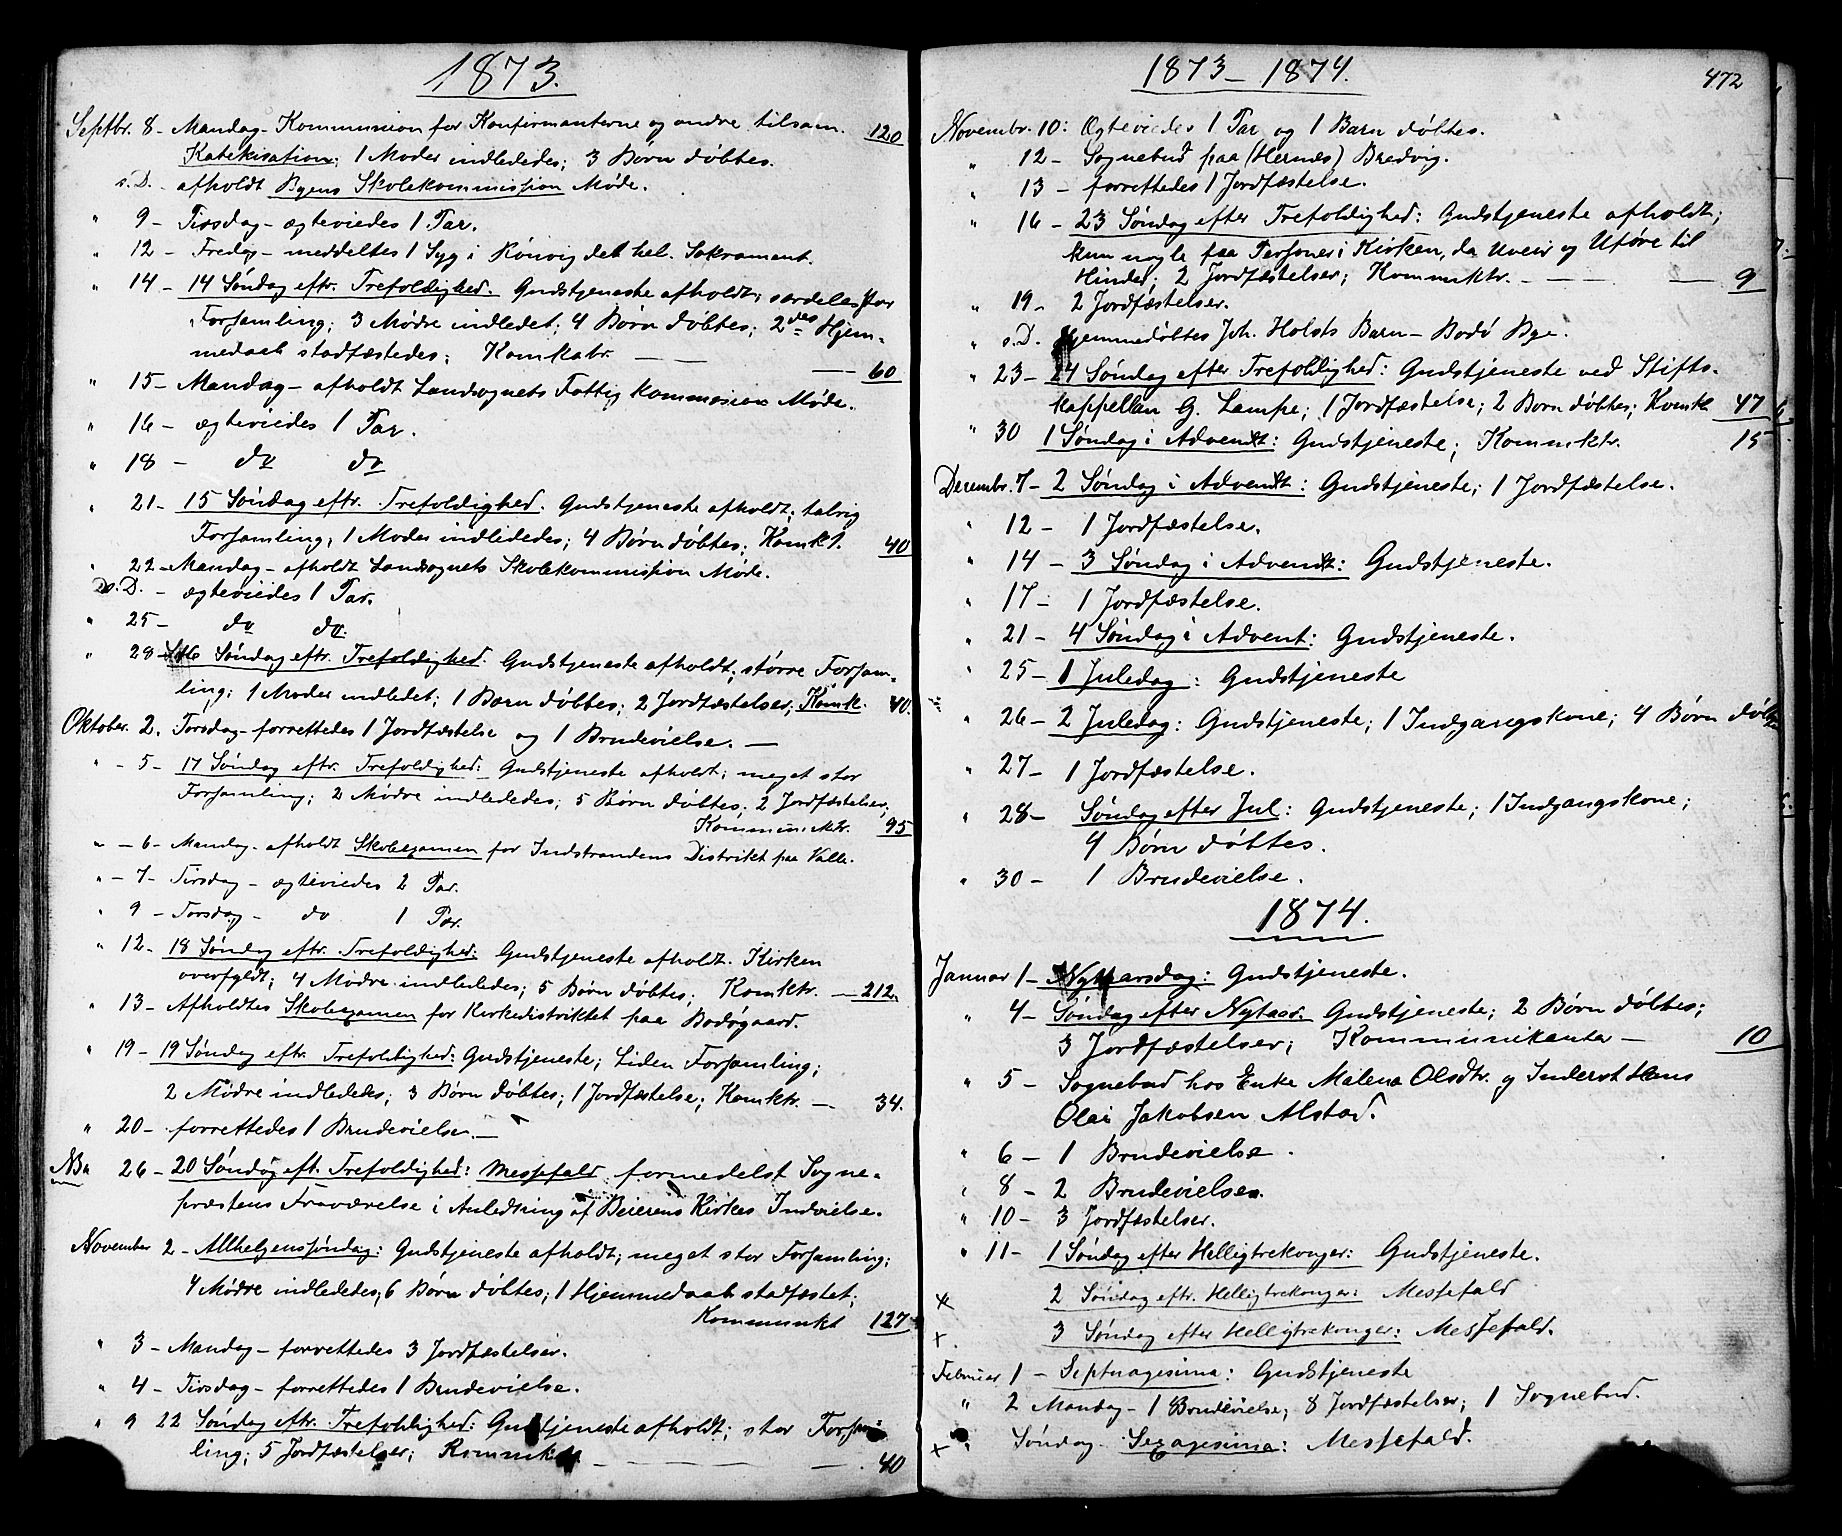 1873.
Septbr. 8 - Mandag - Kommunion for Konfirmanterne og andre tilsam. 120
Katekisation; 1 Moder indlededes; 3 Børn døbtes.
s.D. - afholdt Byens Skolekommission Møde.
" 9 - Tirsdag - ægteviedes 1 Par.
" 12 - Fredag - meddeltes 1 Syg i Rønvig det hel. Sakrament.
" 14 - 14 Søndag eftr. Trefoldighed. Gudstjeneste afholdt; særdeles stor
Forsamling; 3 Mødre indledet; 4 Børn døbtes; 2des Hjem-
medaab stadfæstedes; Komkabr. — — — 60
" 15 - Mandag - afholdt Landsognets Fattigkommission Møde.
" 16 - ægteviedes 1 Par.
" 18 - do do
" 21 - 15 Søndag eftr. Trefoldighed. Gudstjeneste afholdt; talrig
Forsamling; 1 Moder indlededes; 4 Børn døbtes; Komkt. 40
" 22 - Mandag - afholdt Landsognets Skolekommission Møde.
Ds.D. - ægteviedes 1 Par.
" 25 - do do.
" 28 - 16 Søndag eftr. Trefoldighed. Gudstjeneste afholdt; større Forsam-
ling; 1 Moder indledet; 1 Barn døbtes; 2 Jordfæstelser; Komk. 40.
Oktober. 2. Torsdag - forrettedes 1 Jordfæstelse og 1 Brudevielse. —
" - 5 - 17 Søndag eftr. Trefoldighed: Gudstjeneste afholdt; meget stor
Forsamling; 2 Mødre indlededes; 5 Børn døbtes; 2 Jordfæstelser;
Kommuniktr. 95
" - 6 - Mandag - afholdt Skoleexamen for Indstrandens Distrikt paa Valle.
" - 7 - Tirsdag - ægteviedes 2 Par.
" 9 - Torsdag - do 1 Par.
" 12 - 18 Søndag eftr. Trefoldighed: Gudstjeneste afholdt. Kirken
overfyldt; 4 Mødre indlededes; 5 Børn døbtes; Komktr. — 212.
" 13 - Afholdtes Skoleexamen for Kirkedistriktet paa Bodøgaard.
" 19 - 19 Søndag eftr. Trefoldighed: Gudstjeneste; Liden Forsamling;
2 Mødre indlededes; 3 Børn døbtes; 1 Jordfæstelse; Komktr. — 34.
" 20 - forrettedes 1 Brudevielse. —
NB 26 - 20 Søndag eft. Trefoldighed: Messefald formedelst Sogne-
præstens Fraværelse i Anledning af Beierens Kirkes Indvielse.
November 2 - Allhelgenssøndag: Gudstjeneste afholdt; meget stor Forsamling;
4 Mødre indlededes; 6 Børn døbtes; 1 Hjemmedaab stadfæstet;
Kommunkt 127
" 3 - Mandag - forrettedes 3 Jordfæstelser.
" 4 - Tirsdag - forrettedes 1 Brudevielse.
" 9 22 Søndag eftr. Trefoldighed: Gudstjeneste afholdt; stor Forsam-
ling; 5 Jordfæstelser; Kommuk — — — — 40
1873 - 1874.
472
Novembr. 10: Ægteviedes 1 Par og 1 Barn døbtes.
" 12 - Sognebud paa (Hernes) Bredvig.
" 13 - forrettedes 1 Jordfæstelse.
" 16 - 23 Søndag efter Trefoldighed: Gudstjeneste afholdt;
kun nogle faa Personer i Kirken, da Uveir og Uføre til
Hinder; 2 Jordfæstelser; Kommuktr. — — — 9
" 19 - 2 Jordfæstelser.
" s.D. Hjemmedøbtes Joh. Holsts Barn - Bodø Bye.
" 23 - 24 Søndag efter Trefoldighed: Gudstjeneste ved Stifts-
kappellan G. Lampe; 1 Jordfæstelse; 2 Børn døbtes; Komk 47
" 30 1 Søndag i Advendt: Gudstjeneste; Kommktr. 15
Decembr. 7 - 2 Søndag i Advendt: Gudstjeneste; 1 Jordfæstelse.
" 12 - 1 Jordfæstelse.
" 14 - 3 Søndag i Advendt: Gudstjeneste.
" 17 - 1 Jordfæstelse.
" 21 - 4 Søndag i Advent: Gudstjeneste.
" 25 - 1 Juledag: Gudstjeneste
" 26 - 2 Juledag: Gudstjeneste; 1 Indgangskone; 4 Børn døbtes
" 27 - 1 Jordfæstelse.
" 28 - Søndag efter Jul: Gudstjeneste; 1 Indgangskone;
4 Børn døbtes.
" 30 - 1 Brudevielse.
1874.
Januar 1 - Nytaarsdag: Gudstjeneste.
" 4 - Søndag efter Nytaar. Gudstjeneste; 2 Børn døbtes;
3 Jordfæstelser; Kommunikanter — 10
" 5 - Sognebud hos Enke Malena Olsdtr. og Inderst Hans
Olai Jakobsen Alstad.
" 6 - 1 Brudevielse.
" 8 - 2 Brudevielser.
" 10 - 3 Jordfæstelser.
" 11 - 1 Søndag efter Helligtrekonger: Gudstjeneste.
x 2 Søndag eftr. Helligtrekonger: Messefald
x. 3 Søndag efter Helligtrekonger: Messefald.
Februar 1 - Septuagesima: Gudstjeneste
" 2 Mandag - 1 Brudevielse; 8 Jordfæstelser; 1 Sognebud.
x " Søndag - Sexagesima: Messefald.